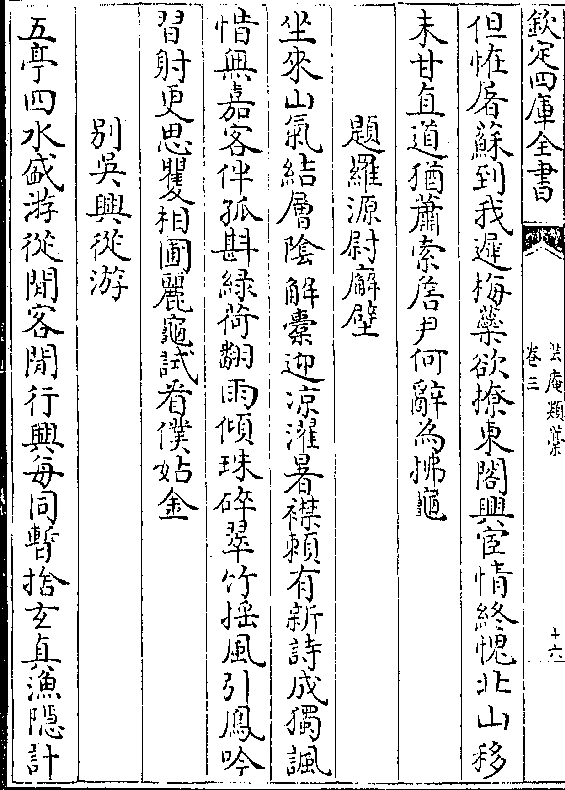 欽定四庫全書
芸庵類藁
卷三
十六
但恠屠蘇到我遲梅蘂欲撩東閣興宦情終愧北山移
未甘直道猶蕭索詹尹何辭為拂龜
題羅源尉廨壁
坐來山氣結層陰解橐迎涼濯暑襟頼有新詩成獨諷
惜無嘉客伴孤斟緑荷翻雨傾珠碎翠竹揺風引鳳吟
習射更思矍相圃麗龜試看僕姑金
別吳興從游
五亭四水盛游從閒客閒行興每同暫捨玄真漁隱計